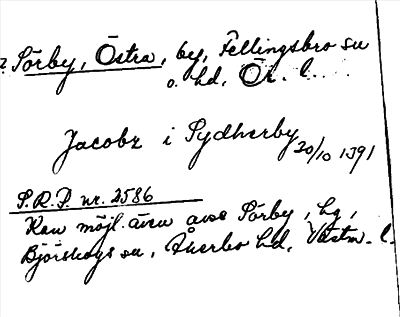 Sörby, Östra, by, Fellingsbro sn
o. hd, Ör. l.
Jacobz i Sydherby 20/10 1391
S.R.P. nr. 2586
Kan möjl. även avse Sörby, hg,
Björskogs sn, Åkerbo hd, Västm. l.